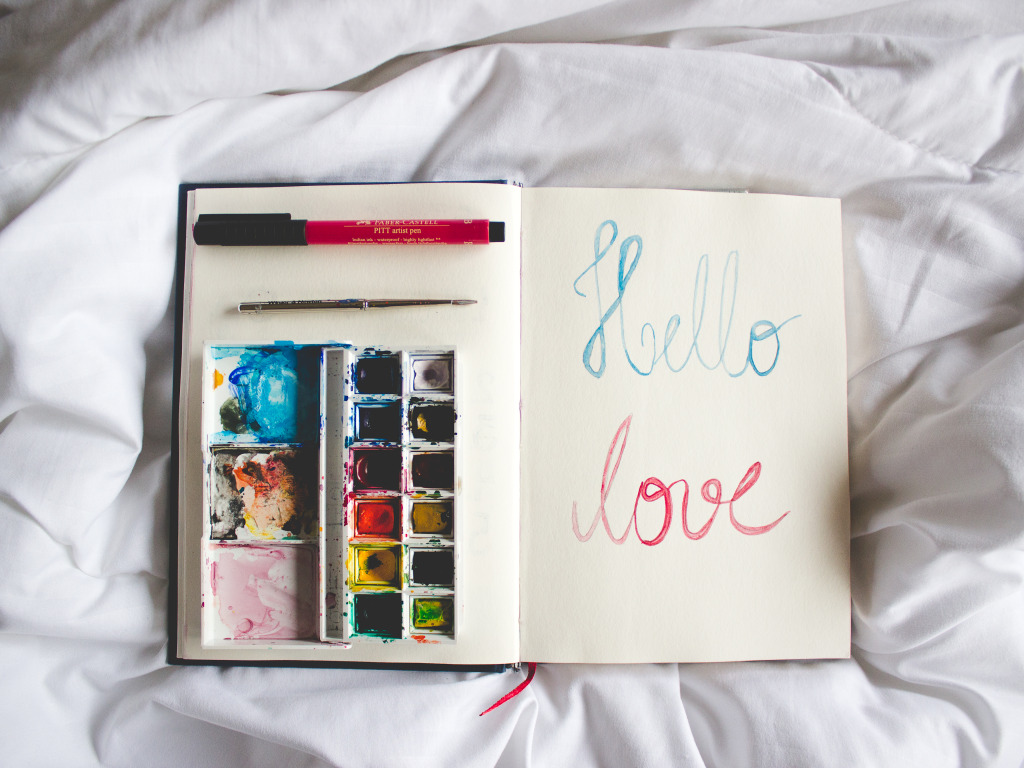 FABER-CASTELL
PITT artist pen
Indian ink · waterproof · highly lightfast
B
Hello
love